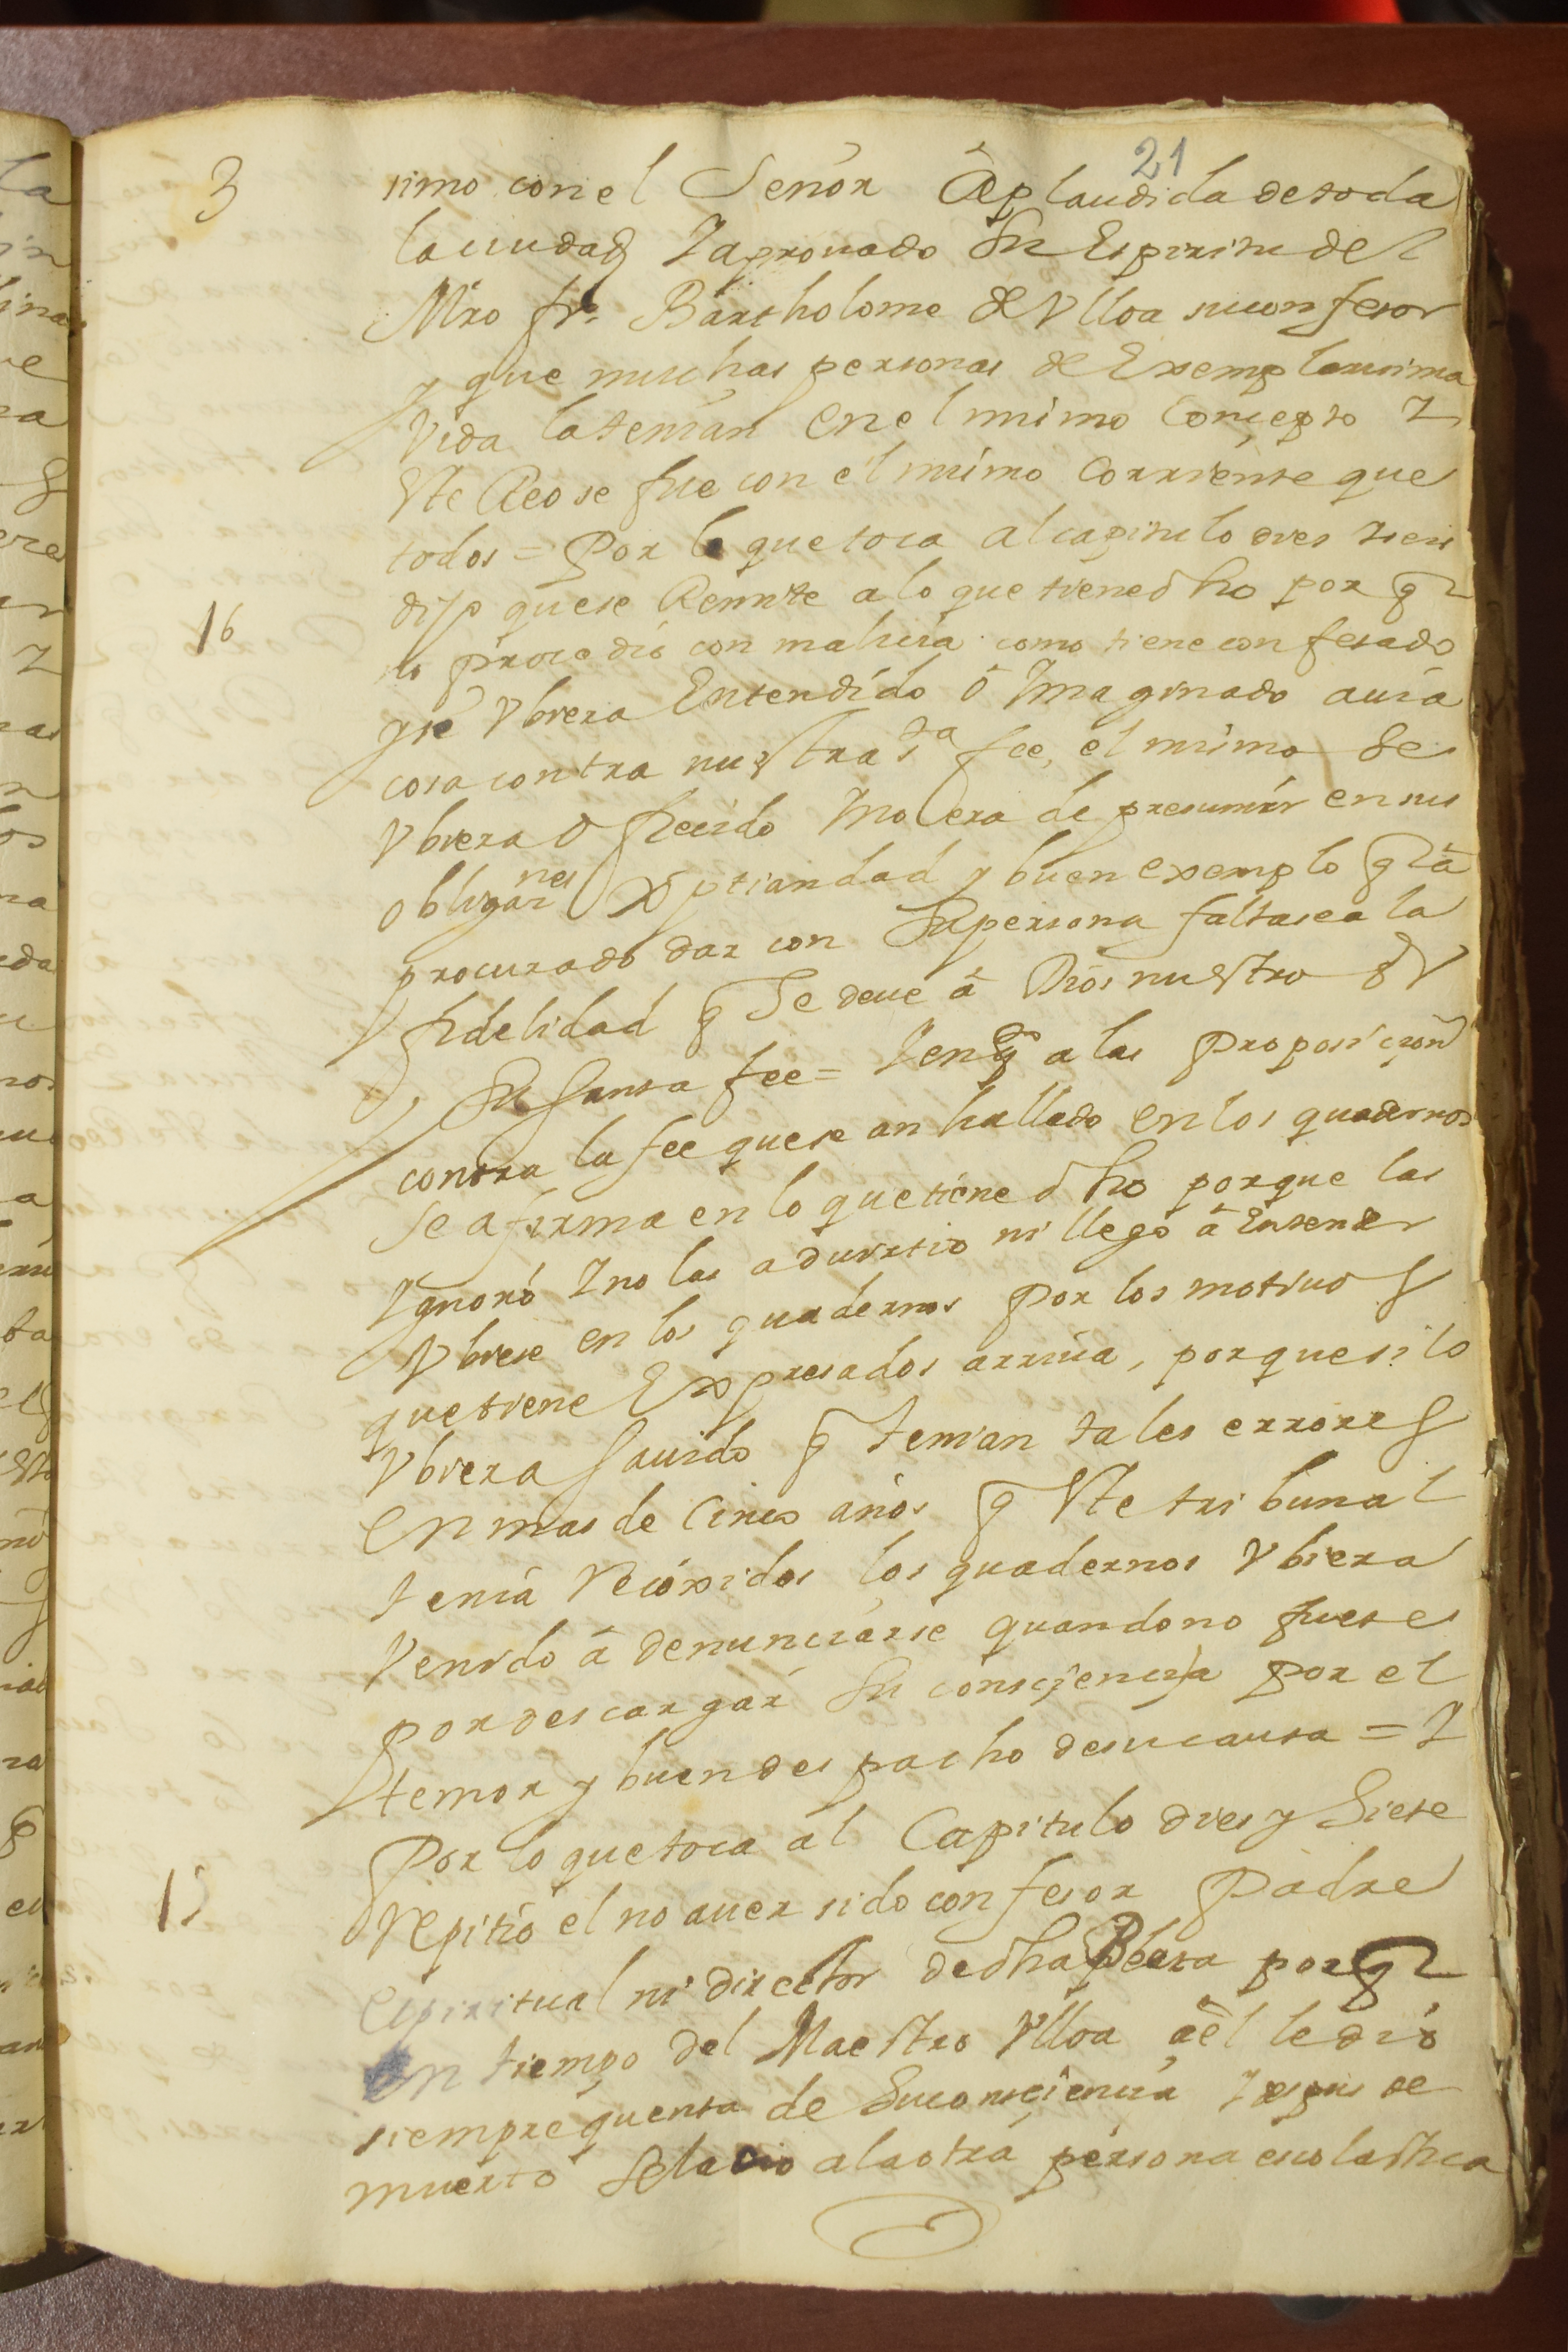 21
3
simo con el Señor Aplaudida de toda
la ciudad Y aprouado Su Espiritu del
Mro fr. Bartholome de Vlloa su confesor
y que muchas personas de Exemplarisima
Vida la tenian en el mismo Concepto Y
Este Reo se fue con el mismo Corriente que
todos = Por lo que toca al capitulo dies y seis
16
dijo que se Remite a lo que tiene dho por q
no procedio con malicia como tiene confesado
y si Vbiera Entendido o Ymaginado auia
cosa contra nuestra sta fee, el mismo se
Vbiera ofrecido Y no era de presumir en sus
obligaznes Xptiandad y buen exemplo q a
procurado dar con Su persona faltase a la
fidelidad q Se deue â Dios nuestro Sr
y Su Santa fee = Y en q a las Proposicion
contra la fee que se an hallado en los quadernos
se afirma en lo que tiene dho porque las
Ygnoró Y no las aduirtio ni llegó â Entender
Vbiese en los quadernos por los motiuos
que tiene Expresados arriua, porque si lo
Vbiera Sauido q tenian tales errores
en mas de Cinco años q Este tribunal
tenia recoxidos los quadernos Vbiera
Venido â denunciarse quando no fuese
por descargar Su consciencia por el
temor y buen despacho de su causa = Y
Por lo que toca al Capitulo dies y Siete
Repitió el no auer sido confesor Padre
espiritual ni director de dha Beata por q
en tiempo del Maestro Vlloa a el le dió
siempre quenta de Su consciencia Y despues de
muerto se la dio a la otra persona escolastica